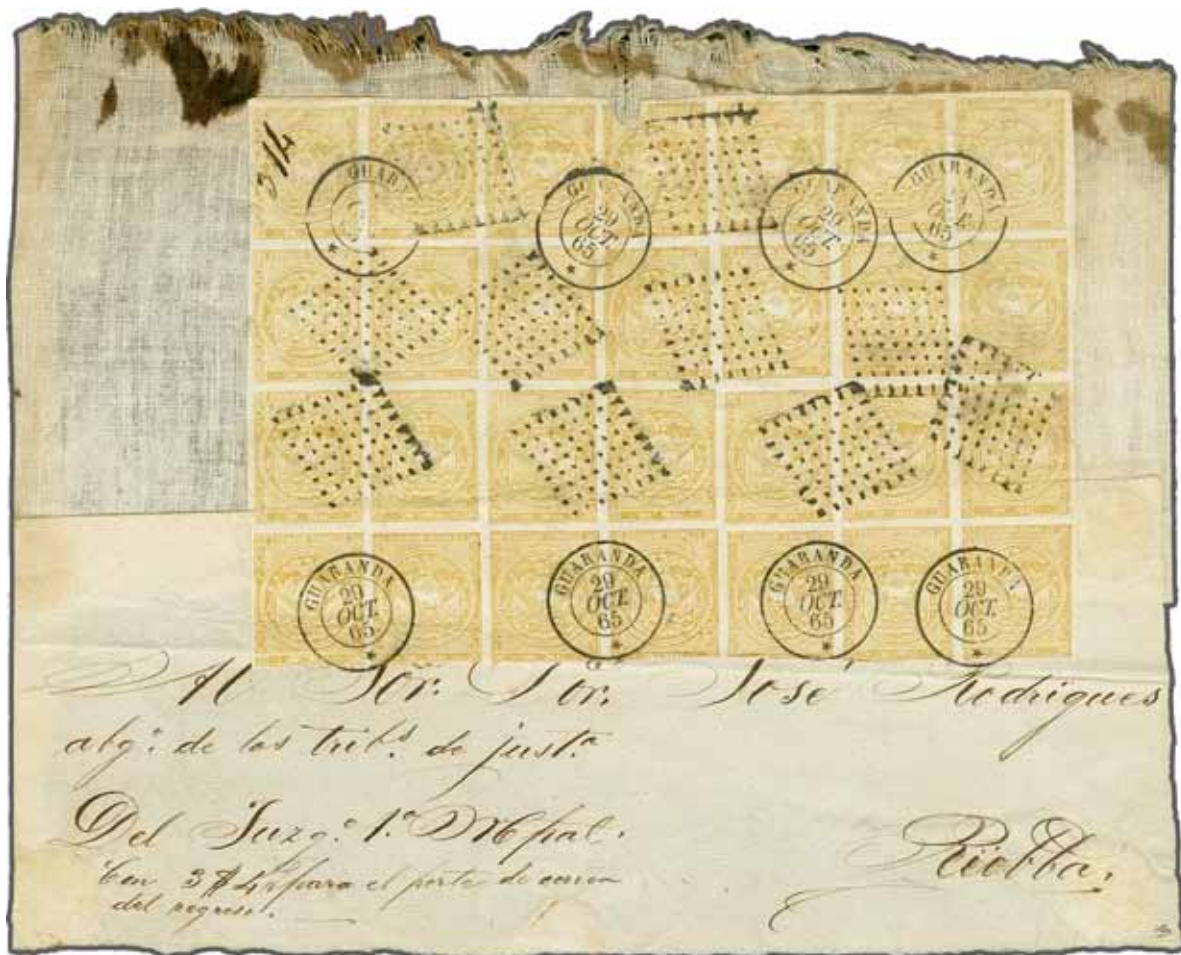 3 / 4
GUARANDA
GUARANDA 29 OCT. 65
GUARANDA 29 OCT. 65
GUARANDA OCT. 65
GUARANDA 29 OCT. 65
GUARANDA 29 OCT. 65
GUARANDA 29 OCT. 65
GUARANDA 29 OCT. 65
Al Sor. Sor. José Rodrigues
abgo. de los tribs. de justa.
Del Juzgo. 1o. Mpal.
Con 3 $ 4 rs para el porte de
del regreso.
Riobba.